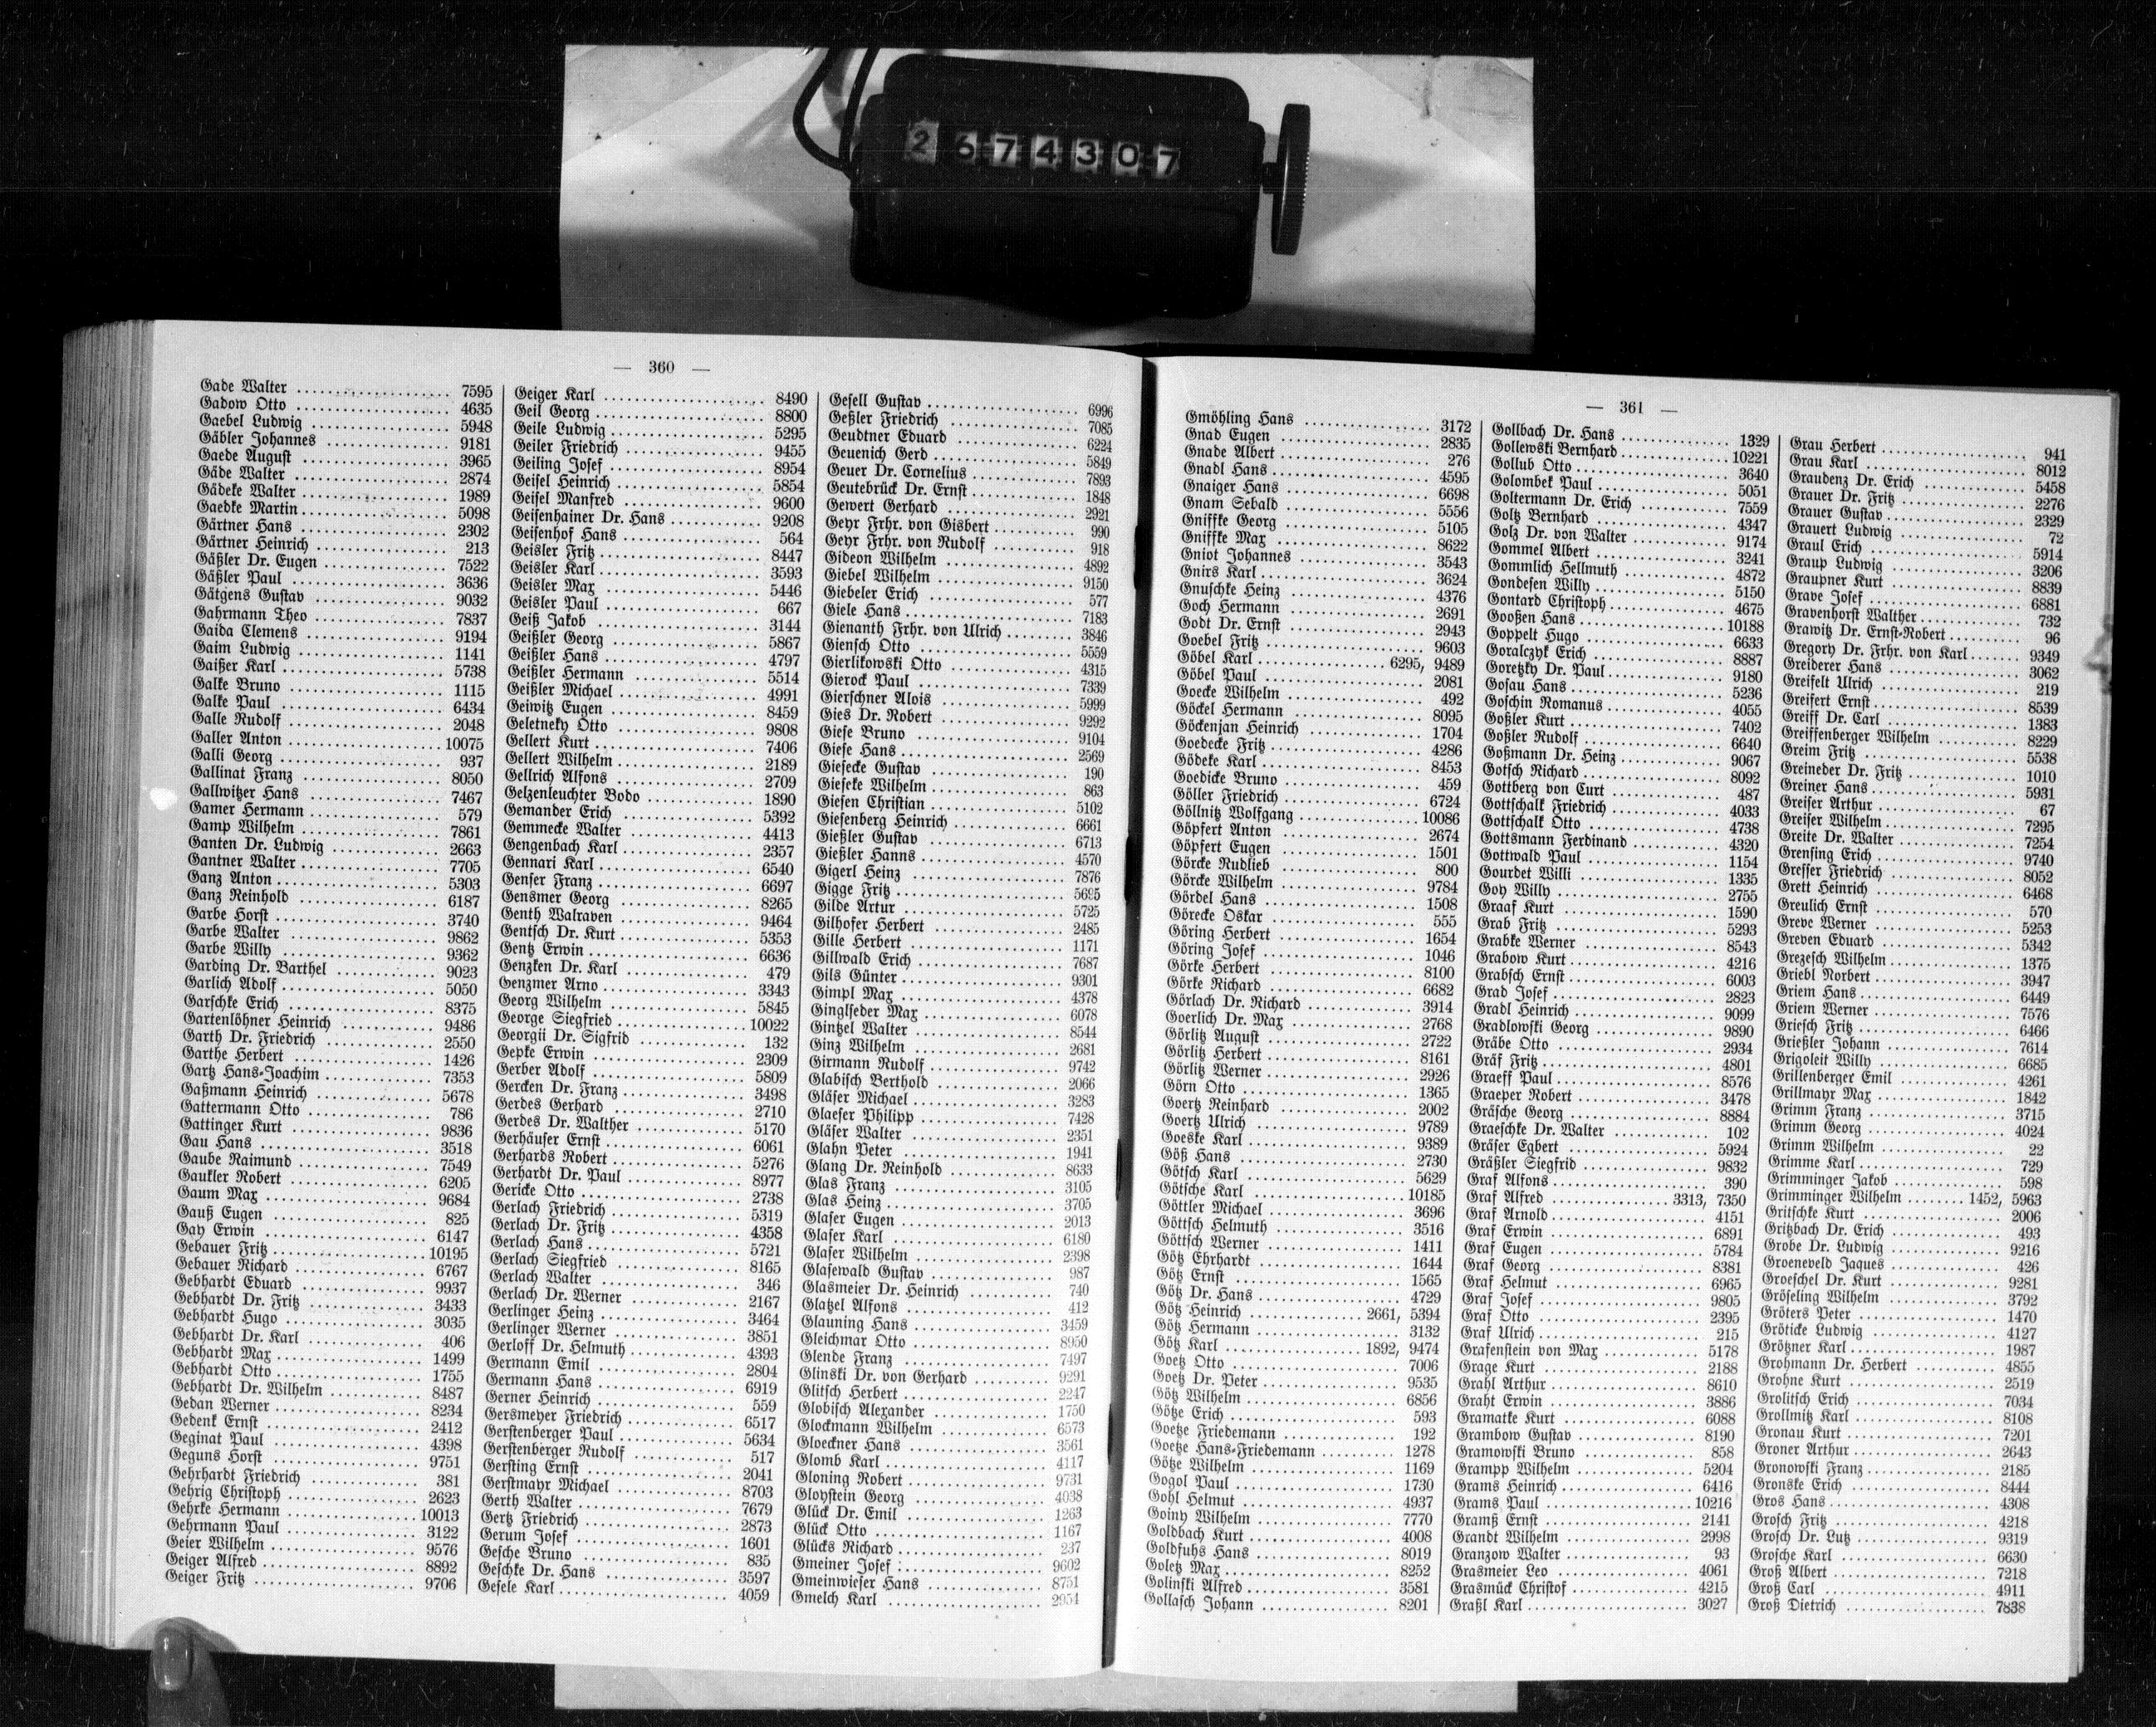 2674307
— 360 —
Gade Walter 7595
Gadow Otto 4635
Gaebel Ludwig 5948
Gäbler Johannes 9181
Gaede August 3965
Gäde Walter 2874
Gädeke Walter 1989
Gaedke Martin 5098
Gärtner Hans 2302
Gärtner Heinrich 213
Gäßler Dr. Eugen 7522
Gäßler Paul 3636
Gätgens Gustav 9032
Gahrmann Theo 7837
Gaida Clemens 9194
Gaim Ludwig 1141
Gaißer Karl 5738
Galke Bruno 1115
Galke Paul 6434
Galle Rudolf 2048
Galler Anton 10075
Galli Georg 937
Gallinat Franz 8050
Gallwitzer Hans 7467
Gamer Hermann 579
Gamp Wilhelm 7861
Ganten Dr. Ludwig 2663
Gantner Walter 7705
Ganz Anton 5303
Ganz Reinhold 6187
Garbe Horst 3740
Garbe Walter 9862
Garbe Willy 9362
Garding Dr. Barthel 9023
Garlich Adolf 5050
Garschke Erich 8375
Gartenlöhner Heinrich 9486
Garth Dr. Friedrich 2550
Garthe Herbert 1426
Gartz Hans-Joachim 7353
Gaßmann Heinrich 5678
Gattermann Otto 786
Gattinger Kurt 9836
Gau Hans 3518
Gaube Raimund 7549
Gaukler Robert 6205
Gaum Max 9684
Gauß Eugen 825
Gay Erwin 6147
Gebauer Fritz 10195
Gebauer Richard 6767
Gebhardt Eduard 9937
Gebhardt Dr. Fritz 3433
Gebhardt Hugo 3035
Gebhardt Dr. Karl 406
Gebhardt Max 1499
Gebhardt Otto 1755
Gebhardt Dr. Wilhelm 8487
Gedan Werner 8234
Gedenk Ernst 2412
Geginat Paul 4398
Geguns Horst 9751
Gehrhardt Friedrich 381
Gehrig Christoph 2623
Gehrke Hermann 10013
Gehrmann Paul 3122
Geier Wilhelm 9576
Geiger Alfred 8892
Geiger Fritz 9706
Geiger Karl 8490
Geil Georg 8800
Geile Ludwig 5295
Geiler Friedrich 9455
Geiling Josef 8954
Geisel Heinrich 5854
Geisel Manfred 9600
Geisenhainer Dr. Hans 9208
Geisenhof Hans 564
Geisler Fritz 8447
Geisler Karl 3593
Geisler Max 5446
Geisler Paul 667
Geiß Jakob 3144
Geißler Georg 5867
Geißler Hans 4797
Geißler Hermann 5514
Geißler Michael 4991
Geiwitz Eugen 8459
Geletneky Otto 9808
Gellert Kurt 7406
Gellert Wilhelm 2189
Gellrich Alfons 2709
Gelzenleuchter Bodo 1890
Gemander Erich 5392
Gemmecke Walter 4413
Gengenbach Karl 2357
Gennari Karl 6540
Genser Franz 6697
Gensmer Georg 8265
Genth Walraven 9464
Gentsch Dr. Kurt 5353
Gentz Erwin 6636
Genzken Dr. Karl 479
Genzmer Arno 3343
Georg Wilhelm 5845
George Siegfried 10022
Georgii Dr. Sigfrid 132
Gepke Erwin 2309
Gerber Adolf 5809
Gercken Dr. Franz 3498
Gerdes Gerhard 2710
Gerdes Dr. Walther 5170
Gerhäuser Ernst 6061
Gerhards Robert 5276
Gerhardt Dr. Paul 8977
Gericke Otto 2738
Gerlach Friedrich 5319
Gerlach Dr. Fritz 4358
Gerlach Hans 5721
Gerlach Siegfried 8165
Gerlach Walter 346
Gerlach Dr. Werner 2167
Gerlinger Heinz 3464
Gerlinger Werner 3851
Gerloff Dr. Helmuth 4393
Germann Emil 2804
Germann Hans 6919
Gerner Heinrich 559
Gersmeyer Friedrich 6517
Gerstenberger Paul 5634
Gerstenberger Rudolf 517
Gersting Ernst 2041
Gerstmayr Michael 8703
Gerth Walter 7679
Gertz Friedrich 2873
Gerum Josef 1601
Gesche Bruno 835
Geschke Dr. Hans 3597
Gesele Karl 4059
Gesell Gustav 6996
Geßler Friedrich 7085
Geudtner Eduard 6224
Geuenich Gerd 5849
Geuer Dr. Cornelius 7893
Geutebrück Dr. Ernst 1848
Gewert Gerhard 2921
Geyr Frhr. von Gisbert 990
Geyr Frhr. von Rudolf 918
Gideon Wilhelm 4892
Giebel Wilhelm 9150
Giebeler Erich 577
Giele Hans 7183
Gienanth Frhr. von Ulrich 3846
Giensch Otto 5559
Gierlikowski Otto 4315
Gierock Paul 7339
Gierschner Alois 5999
Gies Dr. Robert 9292
Giese Bruno 9104
Giese Hans 2569
Giesecke Gustav 190
Gieseke Wilhelm 863
Giesen Christian 5102
Giesenberg Heinrich 6661
Gießler Gustav 6713
Gießler Hanns 4570
Gigerl Heinz 7876
Gigge Fritz 5695
Gilde Artur 5725
Gilhofer Herbert 2485
Gille Herbert 1171
Gillwald Erich 7687
Gils Günter 9301
Gimpl Max 4378
Ginglseder Max 6078
Gintzel Walter 8544
Ginz Wilhelm 2681
Girmann Rudolf 9742
Glabisch Berthold 2066
Gläser Michael 3283
Glaeser Philipp 7428
Gläser Walter 2351
Glahn Peter 1941
Glang Dr. Reinhold 8633
Glas Franz 3105
Glas Heinz 3705
Glaser Eugen 2013
Glaser Karl 6180
Glaser Wilhelm 2398
Glasewald Gustav 987
Glasmeier Dr. Heinrich 740
Glatzel Alfons 412
Glauning Hans 3459
Gleichmar Otto 8950
Glende Franz 7497
Glinski Dr. von Gerhard 9291
Glitsch Herbert 2247
Globisch Alexander 1750
Glockmann Wilhelm 6573
Gloeckner Hans 3561
Glomb Karl 4117
Gloning Robert 9731
Gloystein Georg 4038
Glück Dr. Emil 1263
Glück Otto 1167
Glücks Richard 237
Gmeiner Josef 9602
Gmeinwieser Hans 8751
Gmelch Karl 2954
— 361 —
Gmöhling Hans 3172
Gnad Eugen 2835
Gnade Albert 276
Gnadl Hans 4595
Gnaiger Hans 6698
Gnam Sebald 5556
Gniffke Georg 5105
Gniffke Max 8622
Gniot Johannes 3543
Gnirs Karl 3624
Gnuschke Heinz 4376
Goch Hermann 2691
Godt Dr. Ernst 2943
Goebel Fritz 9603
Göbel Karl 6295, 9489
Göbel Paul 2081
Goecke Wilhelm 492
Göckel Hermann 8095
Göckenjan Heinrich 1704
Goedecke Fritz 4286
Gödeke Karl 8453
Goedicke Bruno 459
Göller Friedrich 6724
Göllnitz Wolfgang 10086
Göpfert Anton 2674
Göpfert Eugen 1501
Görcke Rudlieb 800
Görcke Wilhelm 9784
Gördel Hans 1508
Görecke Oskar 555
Göring Herbert 1654
Göring Josef 1046
Görke Herbert 8100
Görke Richard 6682
Görlach Dr. Richard 3914
Goerlich Dr. Max 2768
Görlitz August 2722
Görlitz Herbert 8161
Görlitz Werner 2926
Görn Otto 1365
Goertz Reinhard 2002
Goertz Ulrich 9789
Goeske Karl 9389
Göß Hans 2730
Götsch Karl 5629
Götsche Karl 10185
Göttler Michael 3696
Göttsch Helmuth 3516
Göttsch Werner 1411
Götz Ehrhardt 1644
Götz Ernst 1565
Götz Dr. Hans 4729
Götz Heinrich 2661, 5394
Götz Hermann 3132
Götz Karl 1892, 9474
Goetz Otto 7006
Goetz Dr. Peter 9535
Götz Wilhelm 6856
Götze Erich 593
Goetze Friedemann 192
Goetze Hans-Friedemann 1278
Götze Wilhelm 1169
Gogol Paul 1730
Gohl Helmut 4937
Goiny Wilhelm 7770
Goldbach Kurt 4008
Goldfuhs Hans 8019
Goletz Max 8252
Golinski Alfred 3581
Gollasch Johann 8201
Gollbach Dr. Hans 1329
Gollewski Bernhard 10221
Gollub Otto 3640
Golombek Paul 5051
Goltermann Dr. Erich 7559
Goltz Bernhard 4347
Golz Dr. von Walter 9174
Gommel Albert 3241
Gommlich Hellmuth 4872
Gondesen Willy 5150
Gontard Christoph 4675
Gooßen Hans 10188
Goppelt Hugo 6633
Goralczyk Erich 8887
Goretzky Dr. Paul 9180
Gosau Hans 5236
Goschin Romanus 4055
Goßler Kurt 7402
Goßler Rudolf 6640
Goßmann Dr. Heinz 9067
Gotsch Richard 8092
Gottberg von Curt 487
Gottschalk Friedrich 4033
Gottschalk Otto 4738
Gottsmann Ferdinand 4320
Gottwald Paul 1154
Gourdet Willi 1335
Goy Willy 2755
Graaf Kurt 1590
Grab Fritz 5293
Grabke Werner 8543
Grabow Kurt 4216
Grabsch Ernst 6003
Grad Josef 2823
Gradl Heinrich 9099
Gradlowski Georg 9890
Gräbe Otto 2934
Gräf Fritz 4801
Graeff Paul 8576
Graeper Robert 3478
Gräsche Georg 8884
Graeschke Dr. Walter 102
Gräser Egbert 5924
Gräßler Siegfrid 9832
Graf Alfons 390
Graf Alfred 3313, 7350
Graf Arnold 4151
Graf Erwin 6891
Graf Eugen 5784
Graf Georg 8381
Graf Helmut 6965
Graf Josef 9805
Graf Otto 2395
Graf Ulrich 215
Grafenstein von Max 5178
Grage Kurt 2188
Grahl Arthur 8610
Graht Erwin 3886
Gramatke Kurt 6088
Grambow Gustav 8190
Gramowski Bruno 858
Grampp Wilhelm 5204
Grams Heinrich 6416
Grams Paul 10216
Gramß Ernst 2141
Grandt Wilhelm 2998
Granzow Walter 93
Grasmeier Leo 4061
Grasmück Christof 4215
Graßl Karl 3027
Grau Herbert 941
Grau Karl 8012
Graudenz Dr. Erich 5458
Grauer Dr. Fritz 2276
Grauer Gustav 2329
Grauert Ludwig 72
Graul Erich 5914
Graup Ludwig 3206
Graupner Kurt 8839
Grave Josef 6881
Gravenhorst Walther 732
Grawitz Dr. Ernst-Robert 96
Gregory Dr. Frhr. von Karl 9349
Greiderer Hans 3062
Greifelt Ulrich 219
Greifert Ernst 8539
Greiff Dr. Carl 1383
Greiffenberger Wilhelm 8229
Greim Fritz 5538
Greineder Dr. Fritz 1010
Greiner Hans 5931
Greiser Arthur 67
Greiser Wilhelm 7295
Greite Dr. Walter 7254
Grensing Erich 9740
Gresser Friedrich 8052
Grett Heinrich 6468
Greulich Ernst 570
Greve Werner 5253
Greven Eduard 5342
Grezesch Wilhelm 1375
Griebl Norbert 3947
Griem Hans 6449
Griem Werner 7576
Griesch Fritz 6466
Grießler Johann 7614
Grigoleit Willy 6685
Grillenberger Emil 4261
Grillmayr Max 1842
Grimm Franz 3715
Grimm Georg 4024
Grimm Wilhelm 22
Grimme Karl 729
Grimminger Jakob 598
Grimminger Wilhelm 1452, 5963
Gritschke Kurt 2006
Gritzbach Dr. Erich 493
Grobe Dr. Ludwig 9216
Groeneveld Jaques 426
Groeschel Dr. Kurt 9281
Gröseling Wilhelm 3792
Gröters Peter 1470
Gröticke Ludwig 4127
Grötzner Karl 1987
Grohmann Dr. Herbert 4855
Grohne Kurt 2519
Grolitsch Erich 7034
Grollmitz Karl 8108
Gronau Kurt 7201
Groner Arthur 2643
Gronowski Franz 2185
Gronske Erich 8444
Gros Hans 4308
Grosch Fritz 4218
Grosch Dr. Lutz 9319
Grosche Karl 6630
Groß Albert 7218
Groß Carl 4911
Groß Dietrich 7838